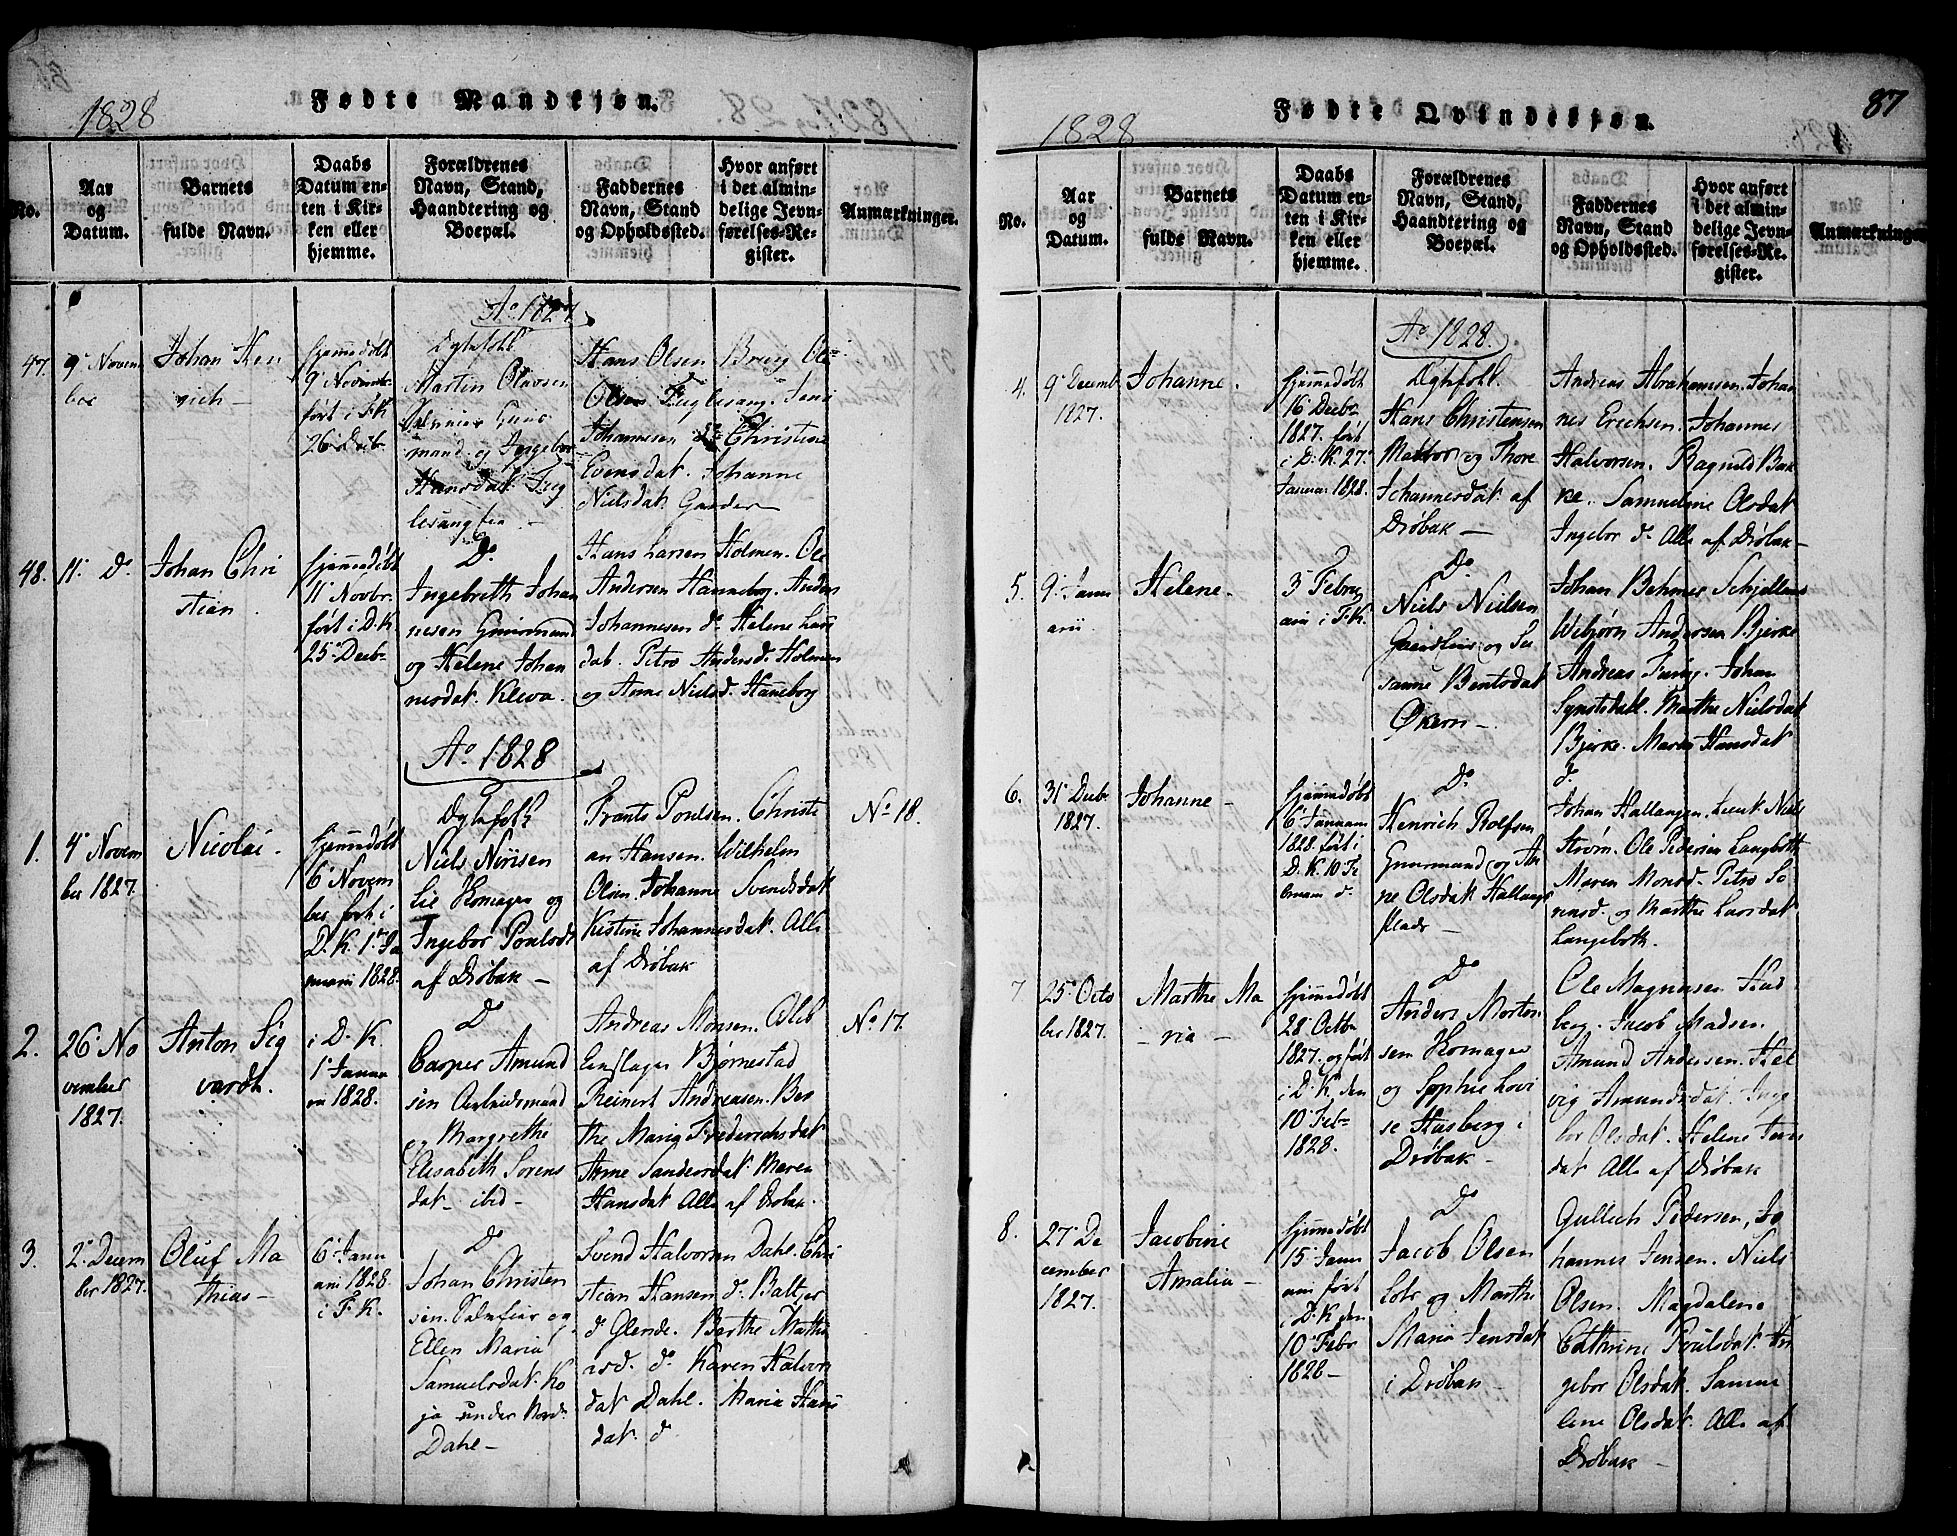 1828
Fødte Mandkjøn.
No.
Aar
og
Datum.
Barnets
fulde Navn.
Daabs
Datum en-
ten i Kir-
ken eller
hjemme.
Forældrenes
Navn, Stand,
Haandtering og
Boepæl.
Faddernes
Navn, Stand
og Opholdssted.
Hvor anført
i det almin-
delige Jevn-
førelses-Re-
gister.
Anmærkninger.
Ao 1827
47.
9 Novem
ber
Johan Hen
rich
hjemmedøbt
9 Novembr
ført i F.K.
26 Decb.
Ægtefolk
Martin Olavsen
mand og Ingebor
Hansdat. Fug
lesang
Hans Olsen Brevig Ole
Olsen Fuglesang. Jens
Johannesen do Christine
Evensdat. Johanne
Nielsdat
48.
11 Do
Johan Chri
stian
hjemmedøbt
11 Novbr.
ført i D.K.
25 Decbr
Do
Ingebreth Johan
nesen Gruurmand
og Helene Johan
nesdat. Kleva.
Hans Larsen Holmen. Ole
Andersen Hanneborg. Anders
Johannesen do Helene Lars
dat. Petro Andersd. Holmen
og Anne Nielsd. Haneborg
Ao 1828
1.
4 Novem
ber 1827.
Nicolai.
hjemmedøbt
6 Novem
ber ført i
D.K. 1 Ja
nuarii 1828.
Ægtefolk
Niels Nirisen
Lie Homager og
Ingebor Poulsdt
af Drøbak
Frants Poulsen. Christi
an Hansen. Wilhelm
Olsen. Johanne Svendsdat
Kistine Johannesdat. Alle
af Drøbak
No 18.
2.
26 No
vember
1827.
Anton Sig
vardt.
i D.K.
1 Janua
rii 1828.
Do
Casper Amund
sen Arbeidsmand
og Margrethe
Elisabeth Sorens
dat ibid
Andreas Monsen. Oleb
Einslager Bjørnestad
Reinert Andreasen. Ber
the Maria Frederichsdat
Anne Sandersdat. Maren
Hansdat Alle af Drobak.
No 17.
3.
2 Decem
ber 1827.
Oluf Ma
thias
6 Janu
arii 1828.
i F.K.
Do
Johan Christen
sen og
Ellen Maria
Samuelsdat. Ko
ja under Nord
Dahl
Svend Halvorsen Dahl. Chri
stian Hansen do Baltzer
do Glende. Berthe Mathi
asd. do Karen Halvors
dat Dahl. Maria Hans
dat. do
87
1828
Fødte Qvindekjøn.
No.
Aar
og
Datum.
Barnets
fulde Navn.
Daabs
Datum en-
ten i Kir-
ken eller
hjemme.
Forældrenes
Navn, Stand,
Haandtering og
Boepæl.
Faddernes
Navn, Stand
og Opholdssted.
Hvor anført
i det almin-
delige Jevn-
førelses-Re-
gister.
Anmærkninger
Ao 1828.
4.
9 Decemb
1827.
Johanne.
hjemmedøbt
16 Decbr
1827. ført
i D.K. 27
Januar 1828.
Ægtefolk.
Hans Christensen
Mattor og Thore
Johannesdat. af
Drøbak
Andreas Abrahamsen. Johan
nes Erichsen. Johannes
Halvorsen. Ragnild Bak
ke. Samueline Olsdat
Ingebor do Alle af Drøbak
5.
9 Janu
arii.
Helene.
3 Febru
arii i F.K.
Do
Niels Nielsen
og Su
sanne Bentsdat
Økern
Johan Behmer Schjelleru
Webjørn Andersen Bjerke
Andreas Furug. Johan
Marthe Nielsdat
Bjerke. Maren Hansdat
do
6.
31 Decbr
1827.
Johanne
hjemmedøbt
6 Januarii
1828. ført i
D.K. 10 Fe
bruarii do.
Do
Henrich Rolfsen
Gruurmand og An
ne Olsdat Hallangs
plads
Johan Hallangen. Lieut Niels
Strøm. Ole Pedersen Langebotth
Maren Monsd. Petro So
rensd. og Marthe Larsdat
Langeboth.
7
25 Octo
ber 1827.
Marthe Ma
ria
hjemmedøbt
28 Octbr
1827. og ført
i D.K. den
10 Febr
1828.
Do
Anders Morten
sen Homager
og Sophie Lovi
se Husberg i
Drøbak
Ole Magnusen Hus
berg. Jacob Madsen.
Amund Andersen. Hel
vig Amundsdat. Inge
bor Olsdat. Helene Jens
dat Alle af Drøbak
8.
27 De
cember
1827.
Jacobine
Amalia
hjemmedøbt
15 Janu
arii ført
i D.K. den
10 Febr
1828
Do
Jacob Olsen
Lots og Marthe
Maria Jensdat
i Drøbak
Gullich Pedersen, Jo
hannes Jensen. Niels
Olsen. Magdalene
Cathrine Poulsdat. In
gebor Olsdat. Samue
line Olsdat. Alle af
Drøbak